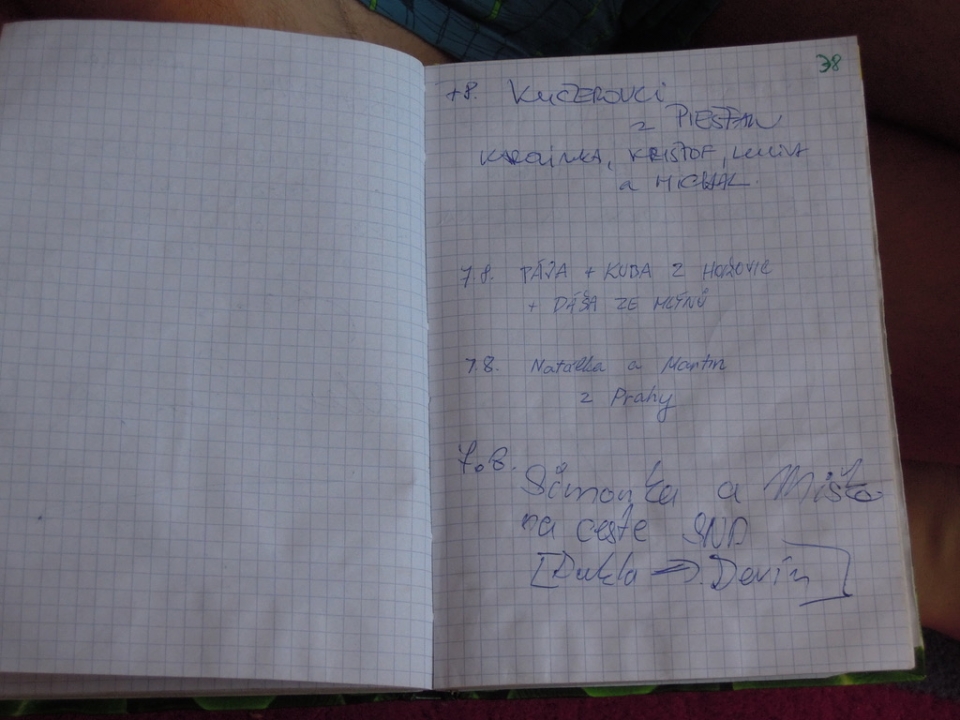 38
7.8. KUČEROVCI
z PIEŠŤAN
KRISTOF,
a MICHAL.
7.8. PÁJA + KUBA Z HOŘOVIC
+ DÁŠA ZE MLÝNŮ
7.8. Natálka a Martin
z Prahy
7.8.
Simonka a Miško
na ceste SNP
[Dukla → Devín]